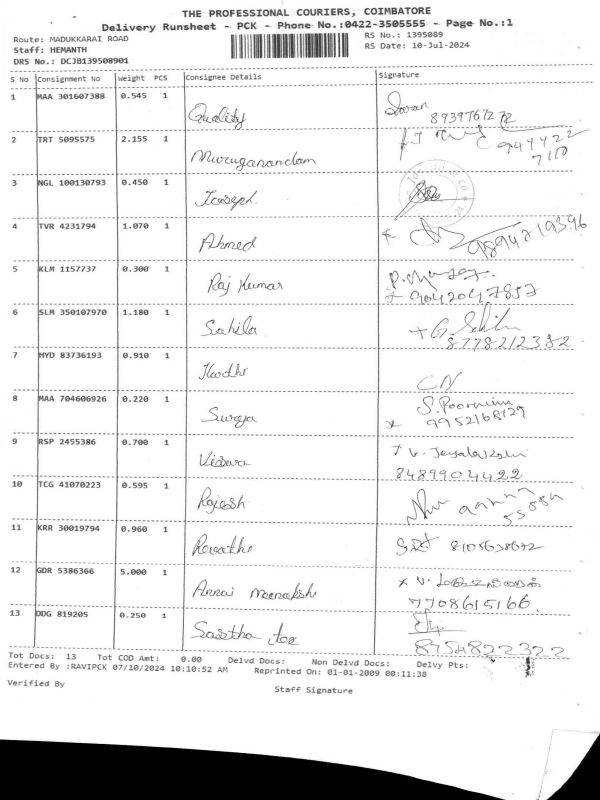 THE PROFESSIONAL COURIERS, COIMBATORE
Delivery Runsheet - PCK - Phone No.:0422-3505555 - Page No.:1
Route: MADUKKARAI ROAD
RS No.: 1395089
Staff: HEMANTH
RS Date: 10-Jul-2024
DRS No.: DCJB139508901
S No Consignment No Weight PCS Consignee Details Signature
1 MAA 301607388 0.545 1 Quality
2 TRT 5095575 2.155 1 Muruganandam
3 NGL 100130793 0.450 1 Joseph
4 TVR 4231794 1.070 1 Ahmed
5 KLM 1157737 0.300 1 Raj Kumar 9042047857
6 SLM 350107970 1.180 1 Sahila 8778212382
7 HYD 83736193 0.910 1 CN
8 MAA 704606926 0.220 1 Suraja S. Poornima
x 9952168129
9 RSP 2455386 0.700 1
8489904422
10 TCG 41070223 0.595 1 Rajesh
11 KRR 30019794 0.960 1 Revathi
12 GDR 5386366 5.000 1 Annai Meenakshi
7708615166
13 DDG 819205 0.250 1 8754822322
Tot Docs: 13 Tot COD Amt: 0.00 Delvd Docs: Non Delvd Docs: Delvy Pts:
Entered By :RAVIPCK 07/10/2024 10:10:52 AM Reprinted On: 01-01-2009 00:11:38
Verified By
Staff Signature